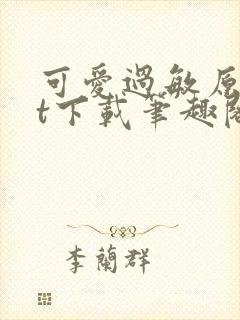 可愛過敏原
t下載筆趣閣
李蘭群